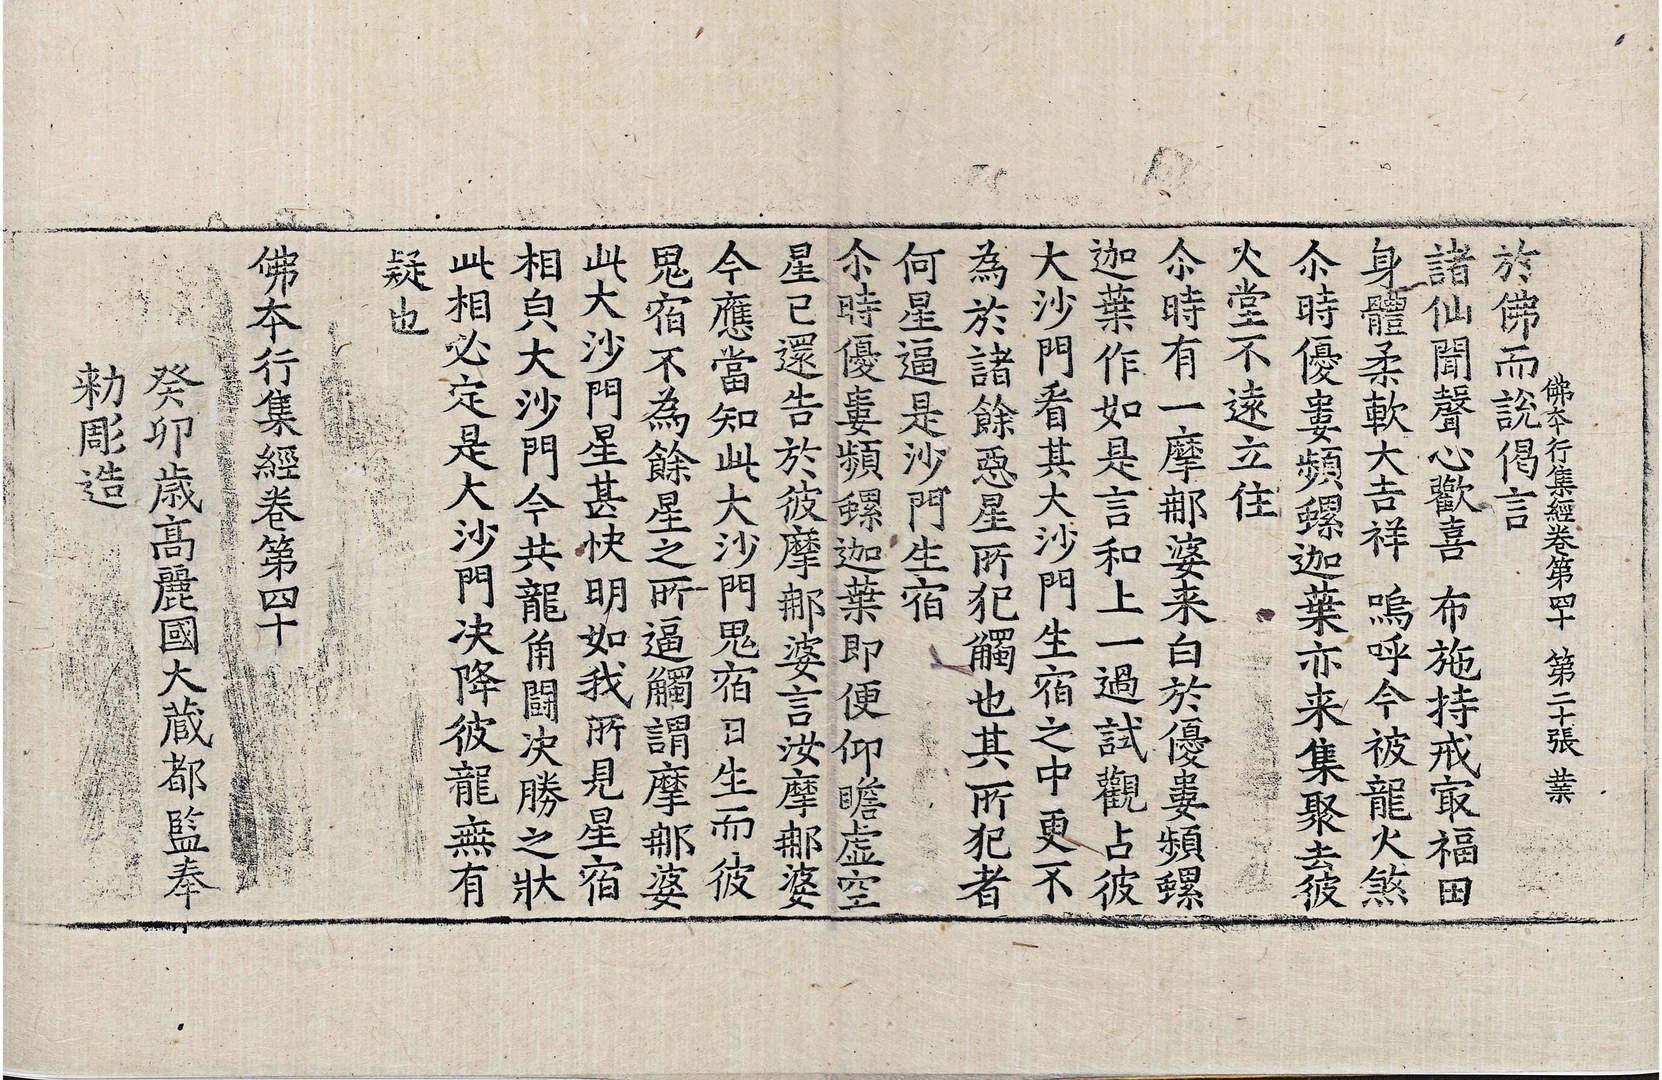 佛夲行集經卷第四十 第二十張 業
於佛而說偈言
諸仙聞聲心歡喜 布施持戒㝡福田
身體柔軟大吉祥 嗚呼今被龍火煞
尒時優婁頻螺迦葉亦来集聚去彼
火堂不遠立住
尒時有一摩那婆来白於優婁頻螺
迦葉作如是言和上一過試觀占彼
大沙門看其大沙門生宿之中更不
為於諸餘惡星所犯觸也其所犯者
何星逼是沙門生宿
尒時優婁頻螺迦葉即便仰瞻虛空
星已還告於彼摩那婆言汝摩那婆
今應當知此大沙門鬼宿日生而彼
鬼宿不為餘星之所逼觸謂摩那婆
此大沙門星甚快明如我所見星宿
相貟大沙門今共龍角鬪决勝之狀
此相必定是大沙門决降彼龍無有
疑也
佛夲行集經卷第四十
癸卯歲高麗國大藏都監奉
勑彫造